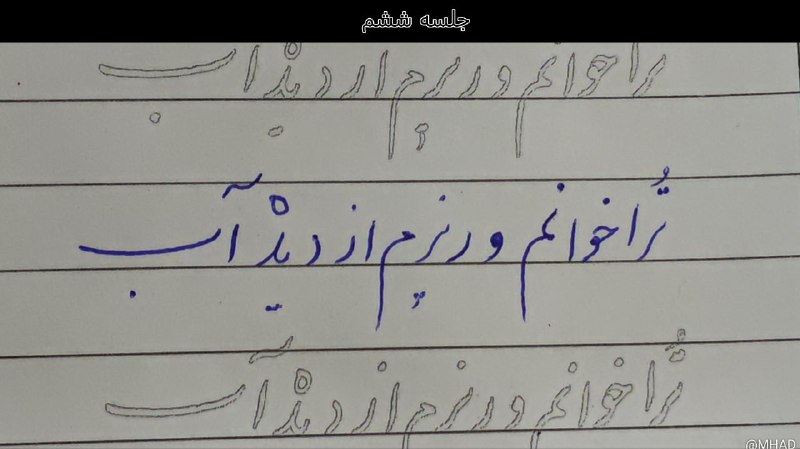 جلسه ششم
تُرا خوانم و ریزم از دیدْ آب
تُرا خوانم و ریزم از دیدْ آب
تُرا خوانم و ریزم از دیدْ آب
@MHAD